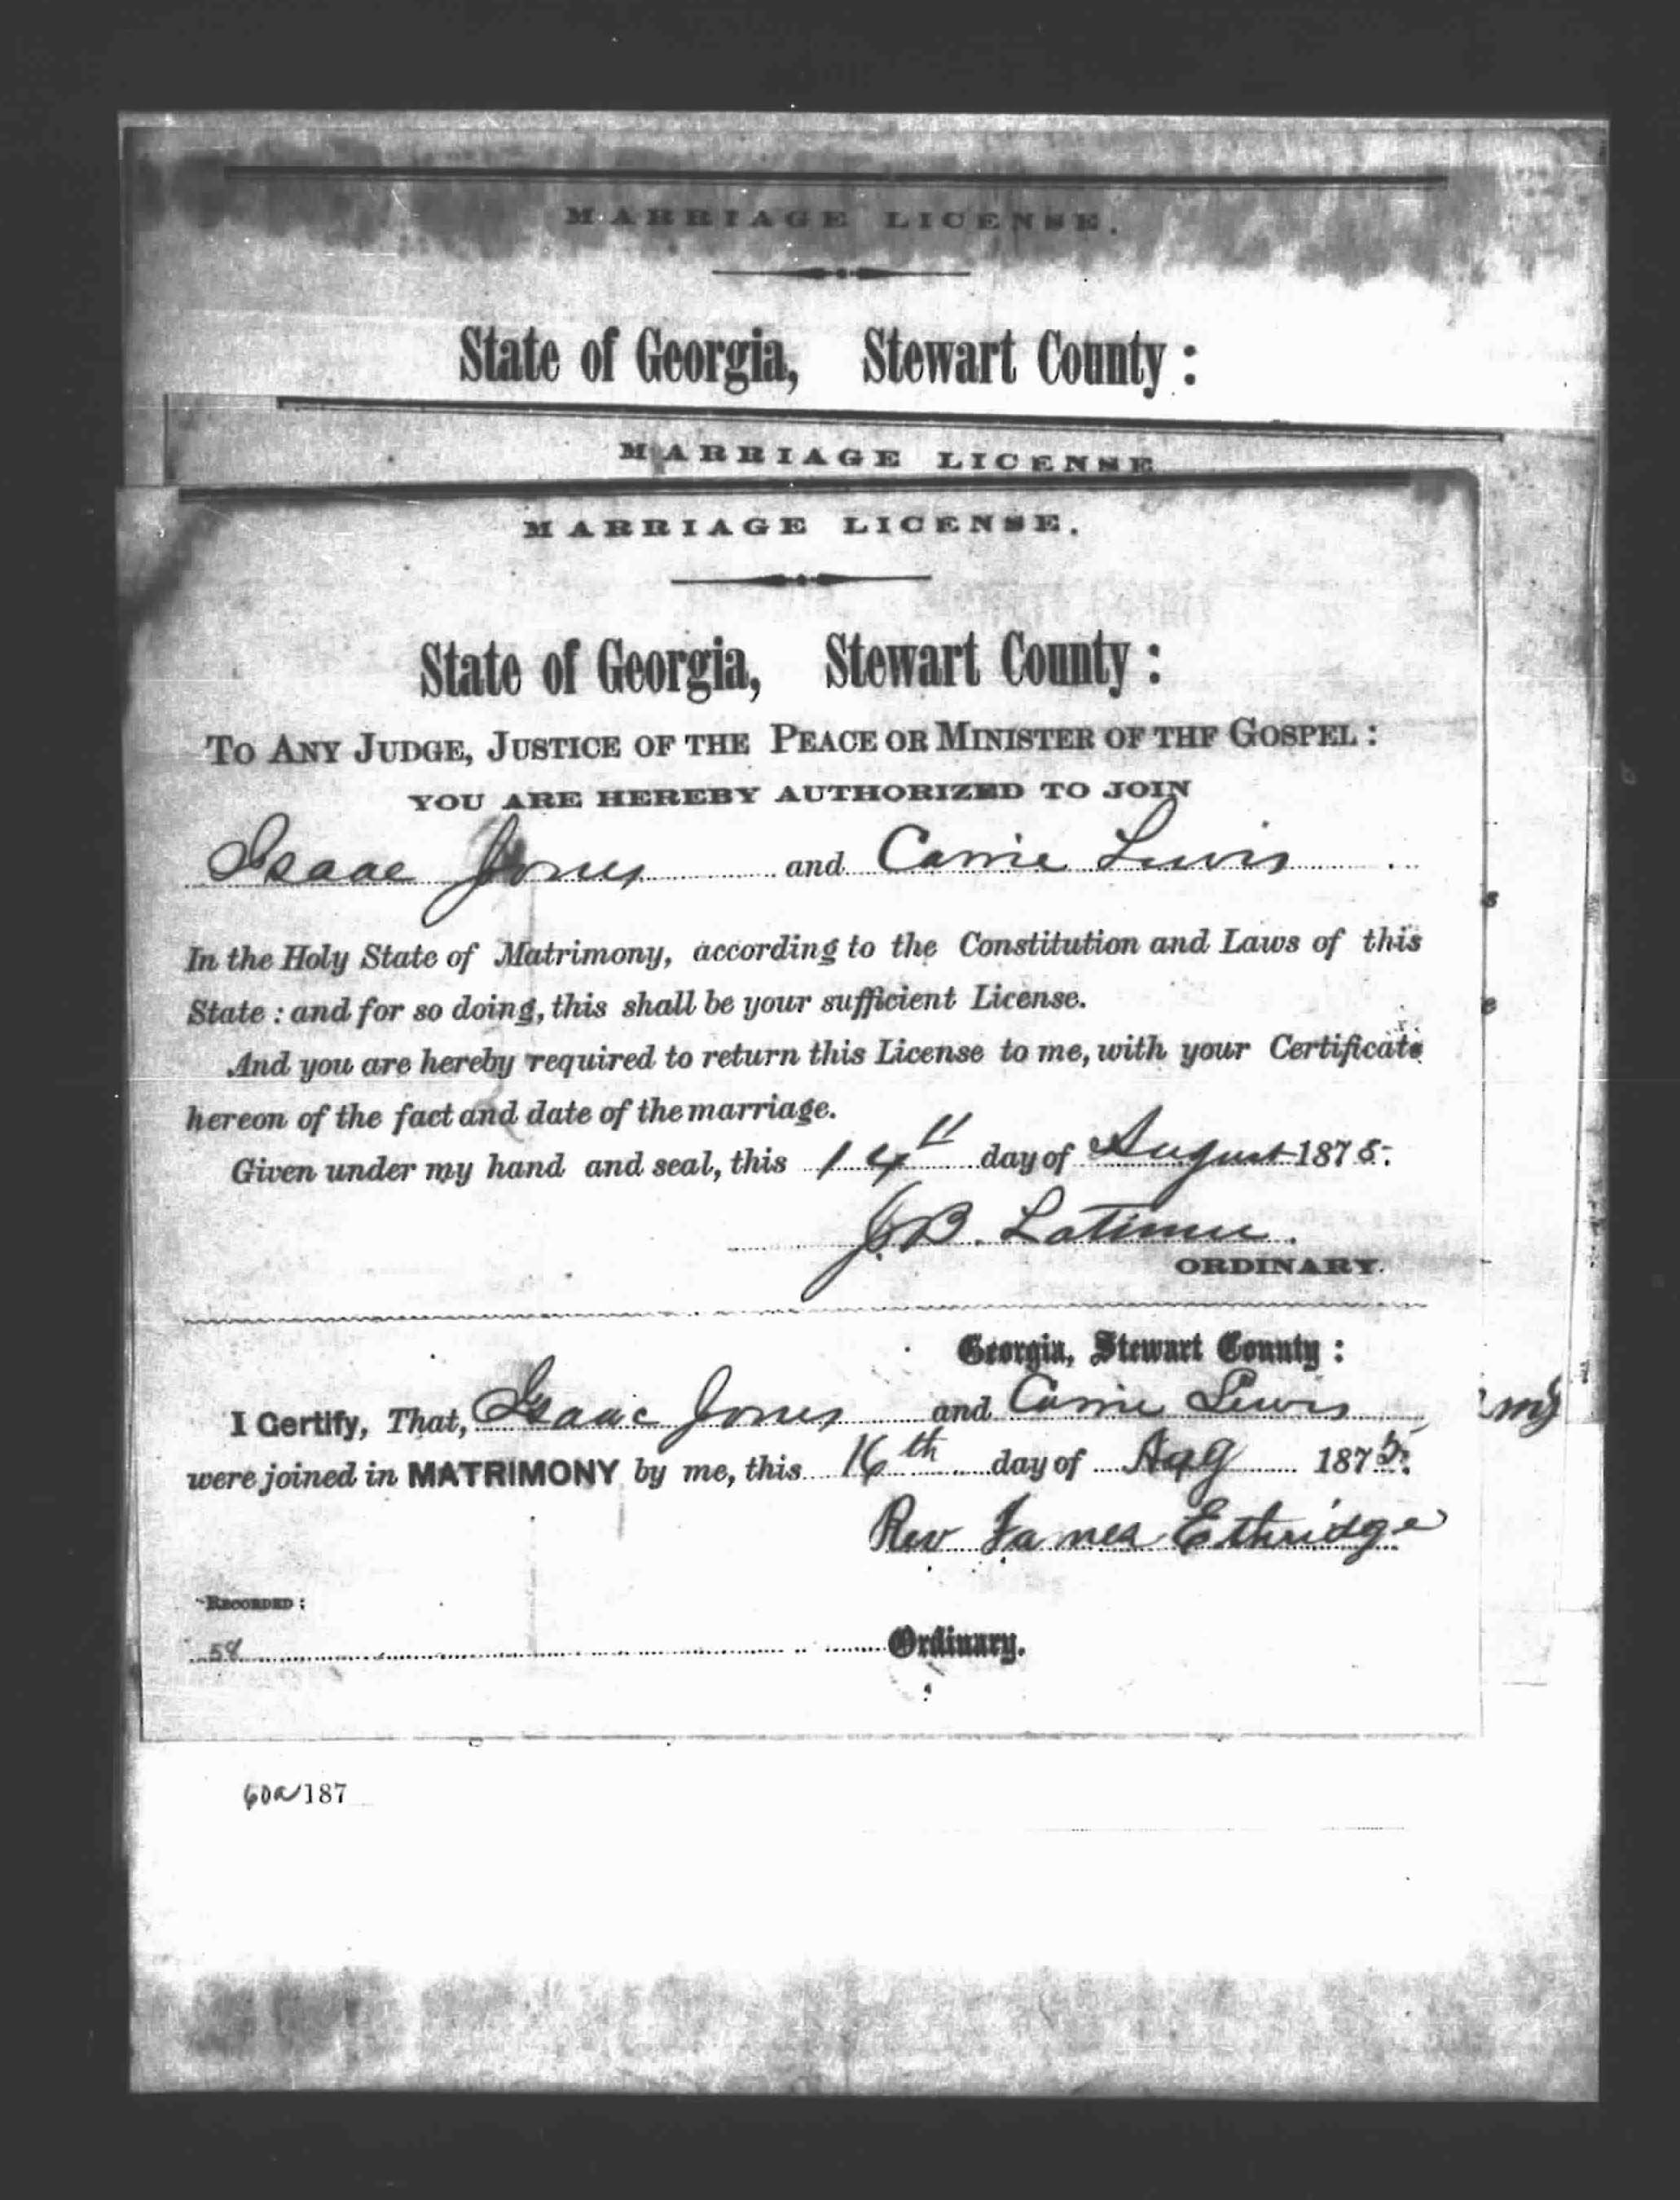 MARRIAGE LICENSE.
State of Georgia, Stewart County :
MARRIAGE LICENSE
MARRIAGE LICENSE.
State of Georgia, Stewart County :
TO ANY JUDGE, JUSTICE OF THE PEACE OR MINISTER OF THF GOSPEL :
YOU ARE HEREBY AUTHORIZED TO JOIN
Isaac Jones and Carrie Lewis
In the Holy State of Matrimony, according to the Constitution and Laws of this
State : and for so doing, this shall be your sufficient License.
And you are hereby required to return this License to me, with your Certificate
hereon of the fact and date of the marriage.
Given under my hand and seal, this 14th day of August 1875.
J.B. Latimer
ORDINARY.
Georgia, Stewart County :
I Certify, That, Isaac Jones and Carrie Lewis
were joined in MATRIMONY by me, this 16th day of Aug 1875.
Rev James Ethridge
RECORDED :
58
Ordinary.
60a 187